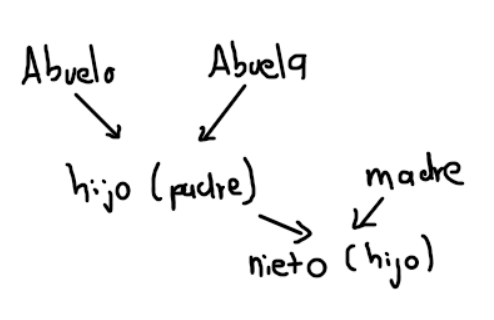 Abuelo Abuela
hijo (padre)
madre
nieto (hijo)